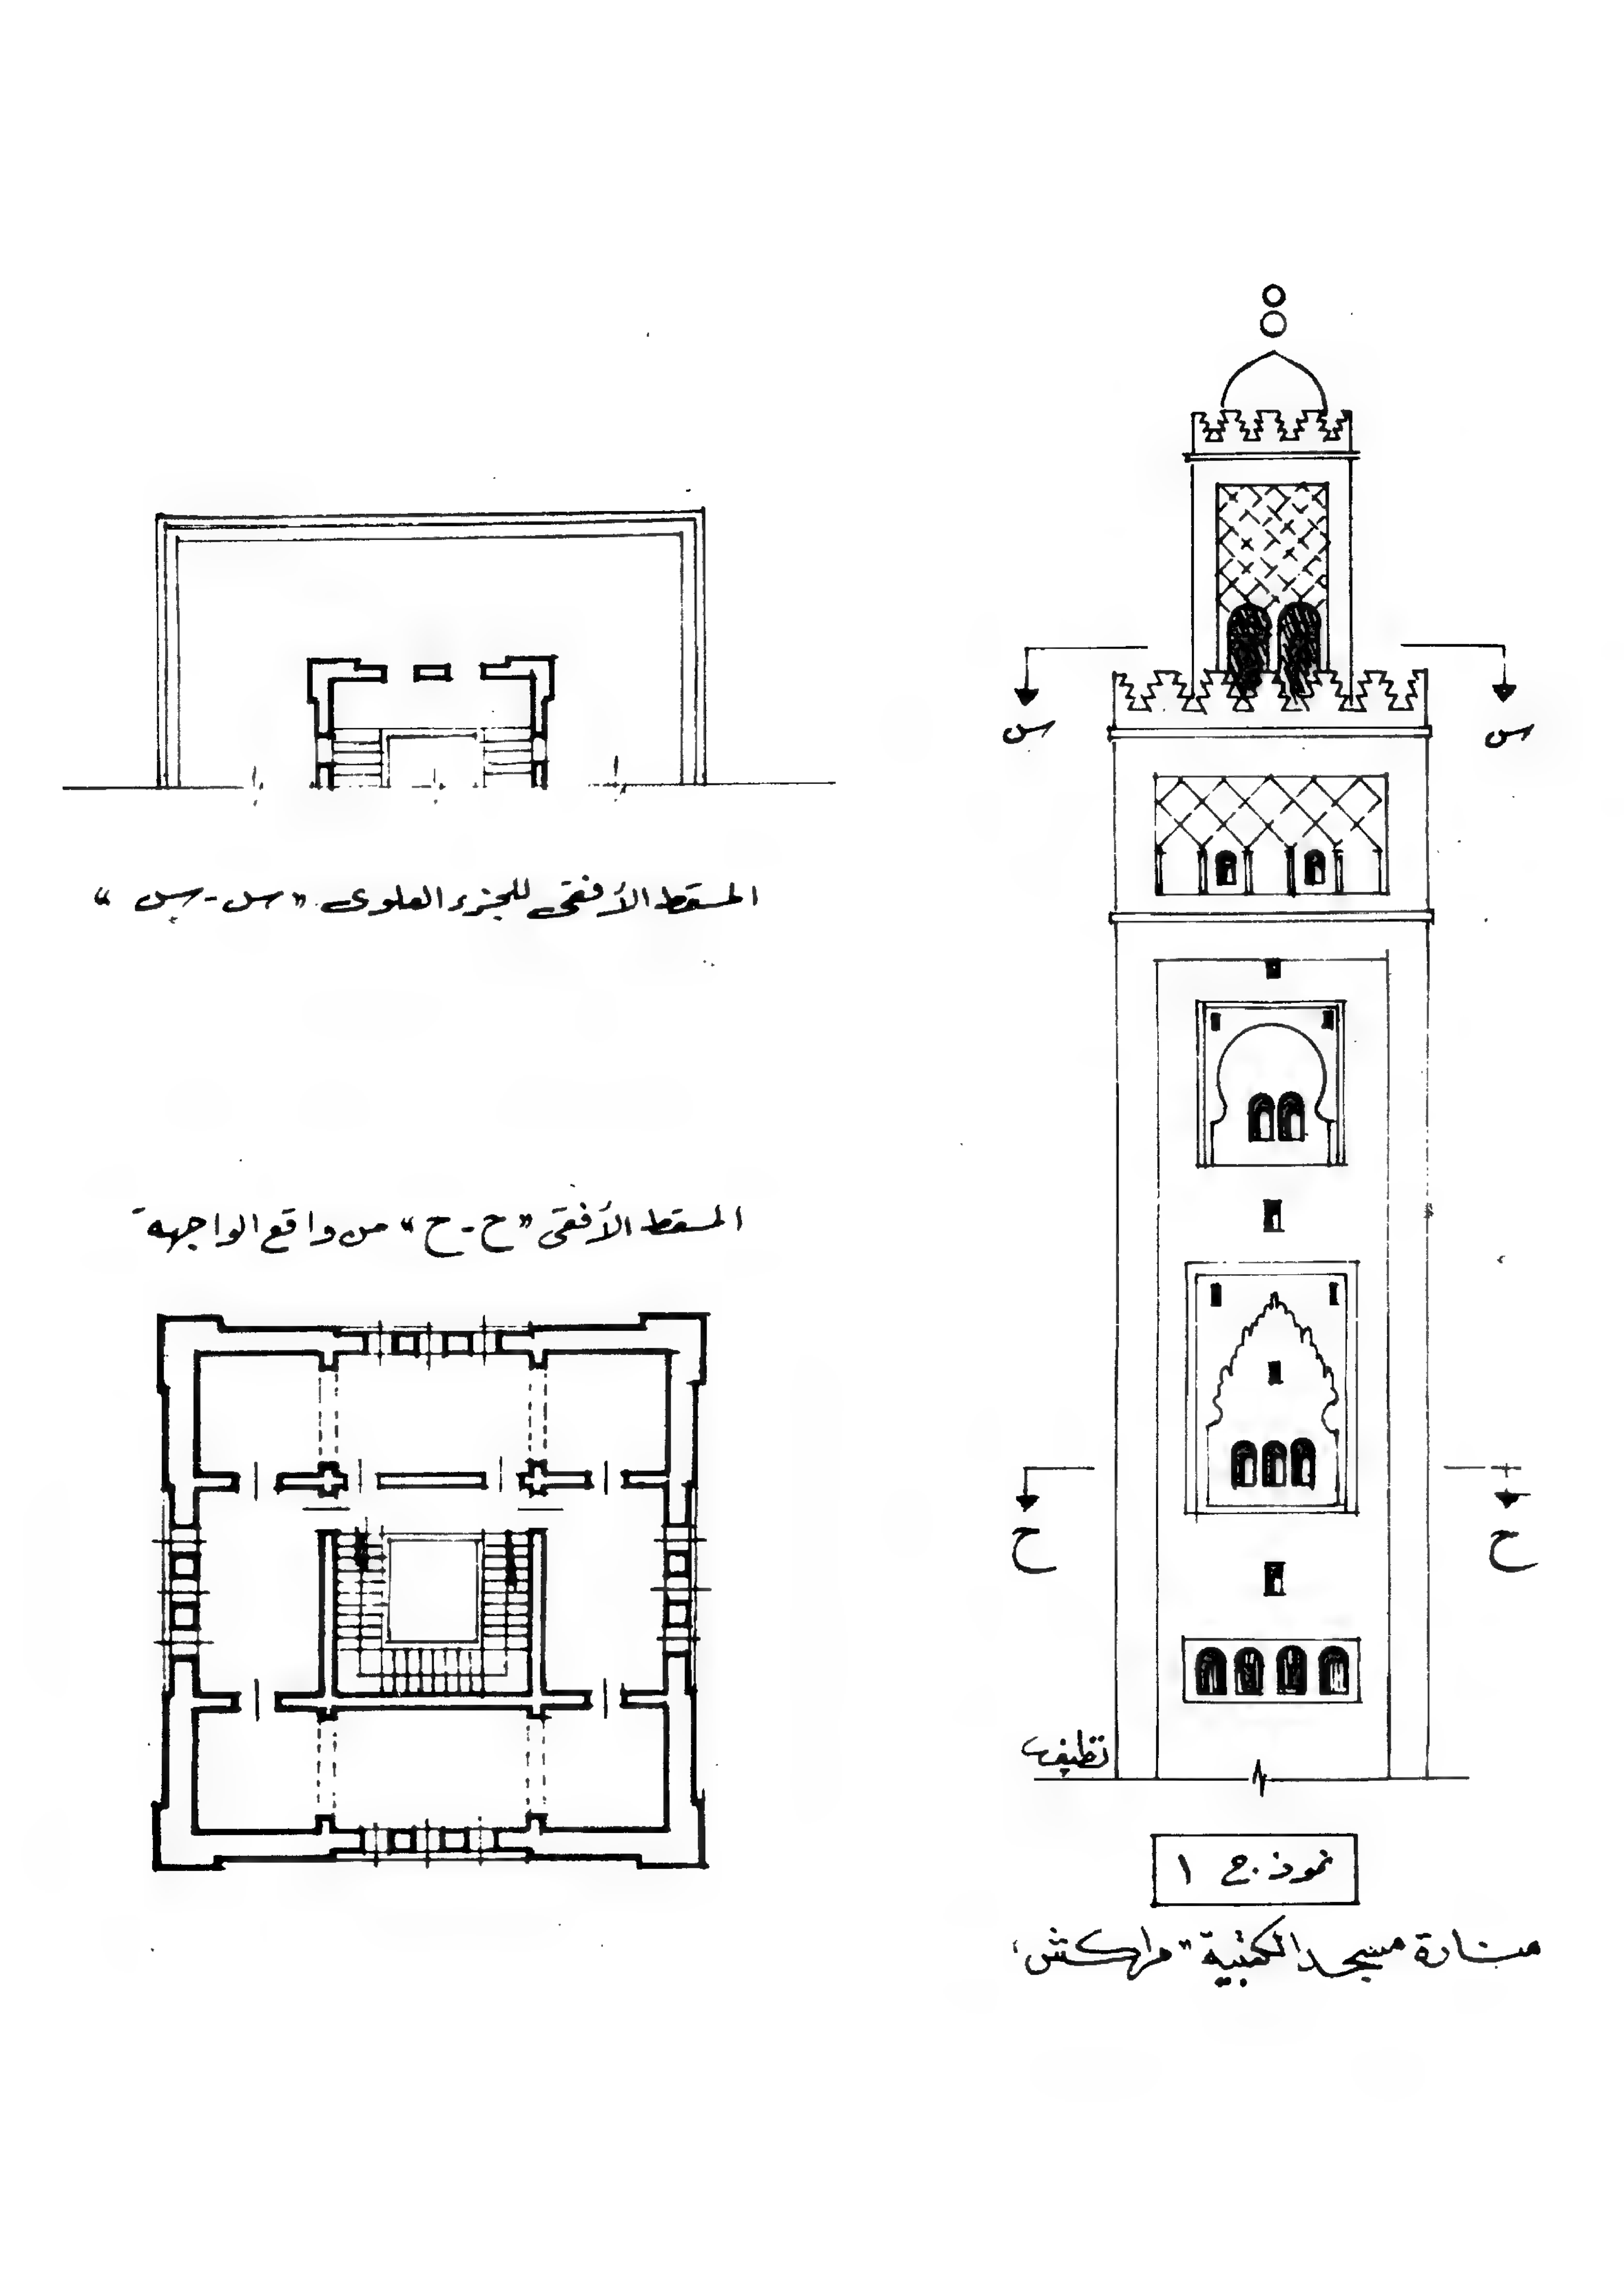 المسقط الأفقى للجزء العلوى "س - س"
المسقط الأفقى "ح - ح" من واقع الواجهة
س
س
ح
ح
نموذج ١
منارة مسجد الكتبية "مراكش"